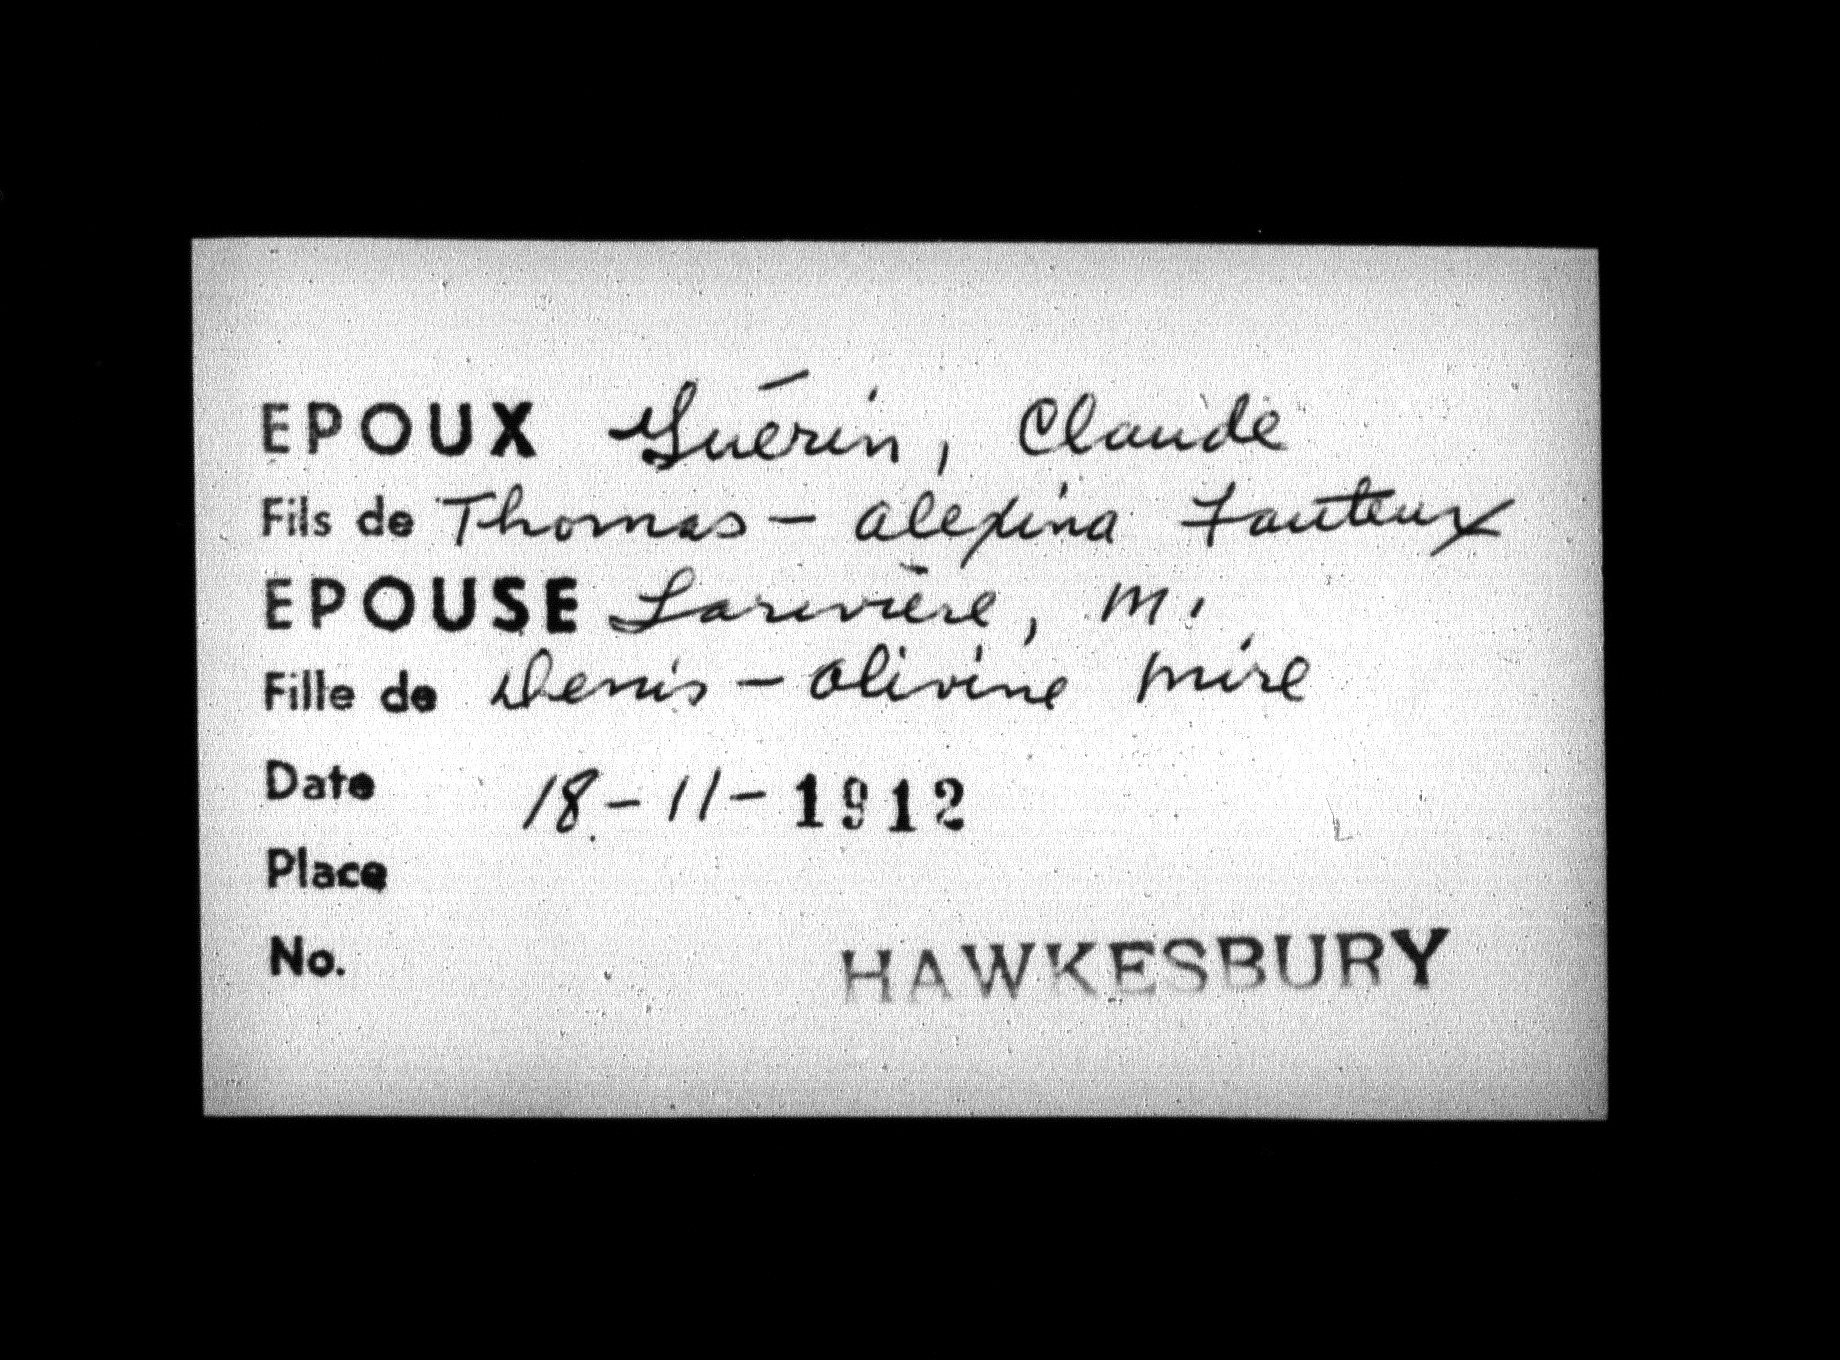 EPOUX Guérin, Claude
Fils de Thomas - Alexina Fauteux
EPOUSE Larivière, M.
Fille de Denis - Olivine Mire
Date 18-11-1912
Place
No. HAWKESBURY